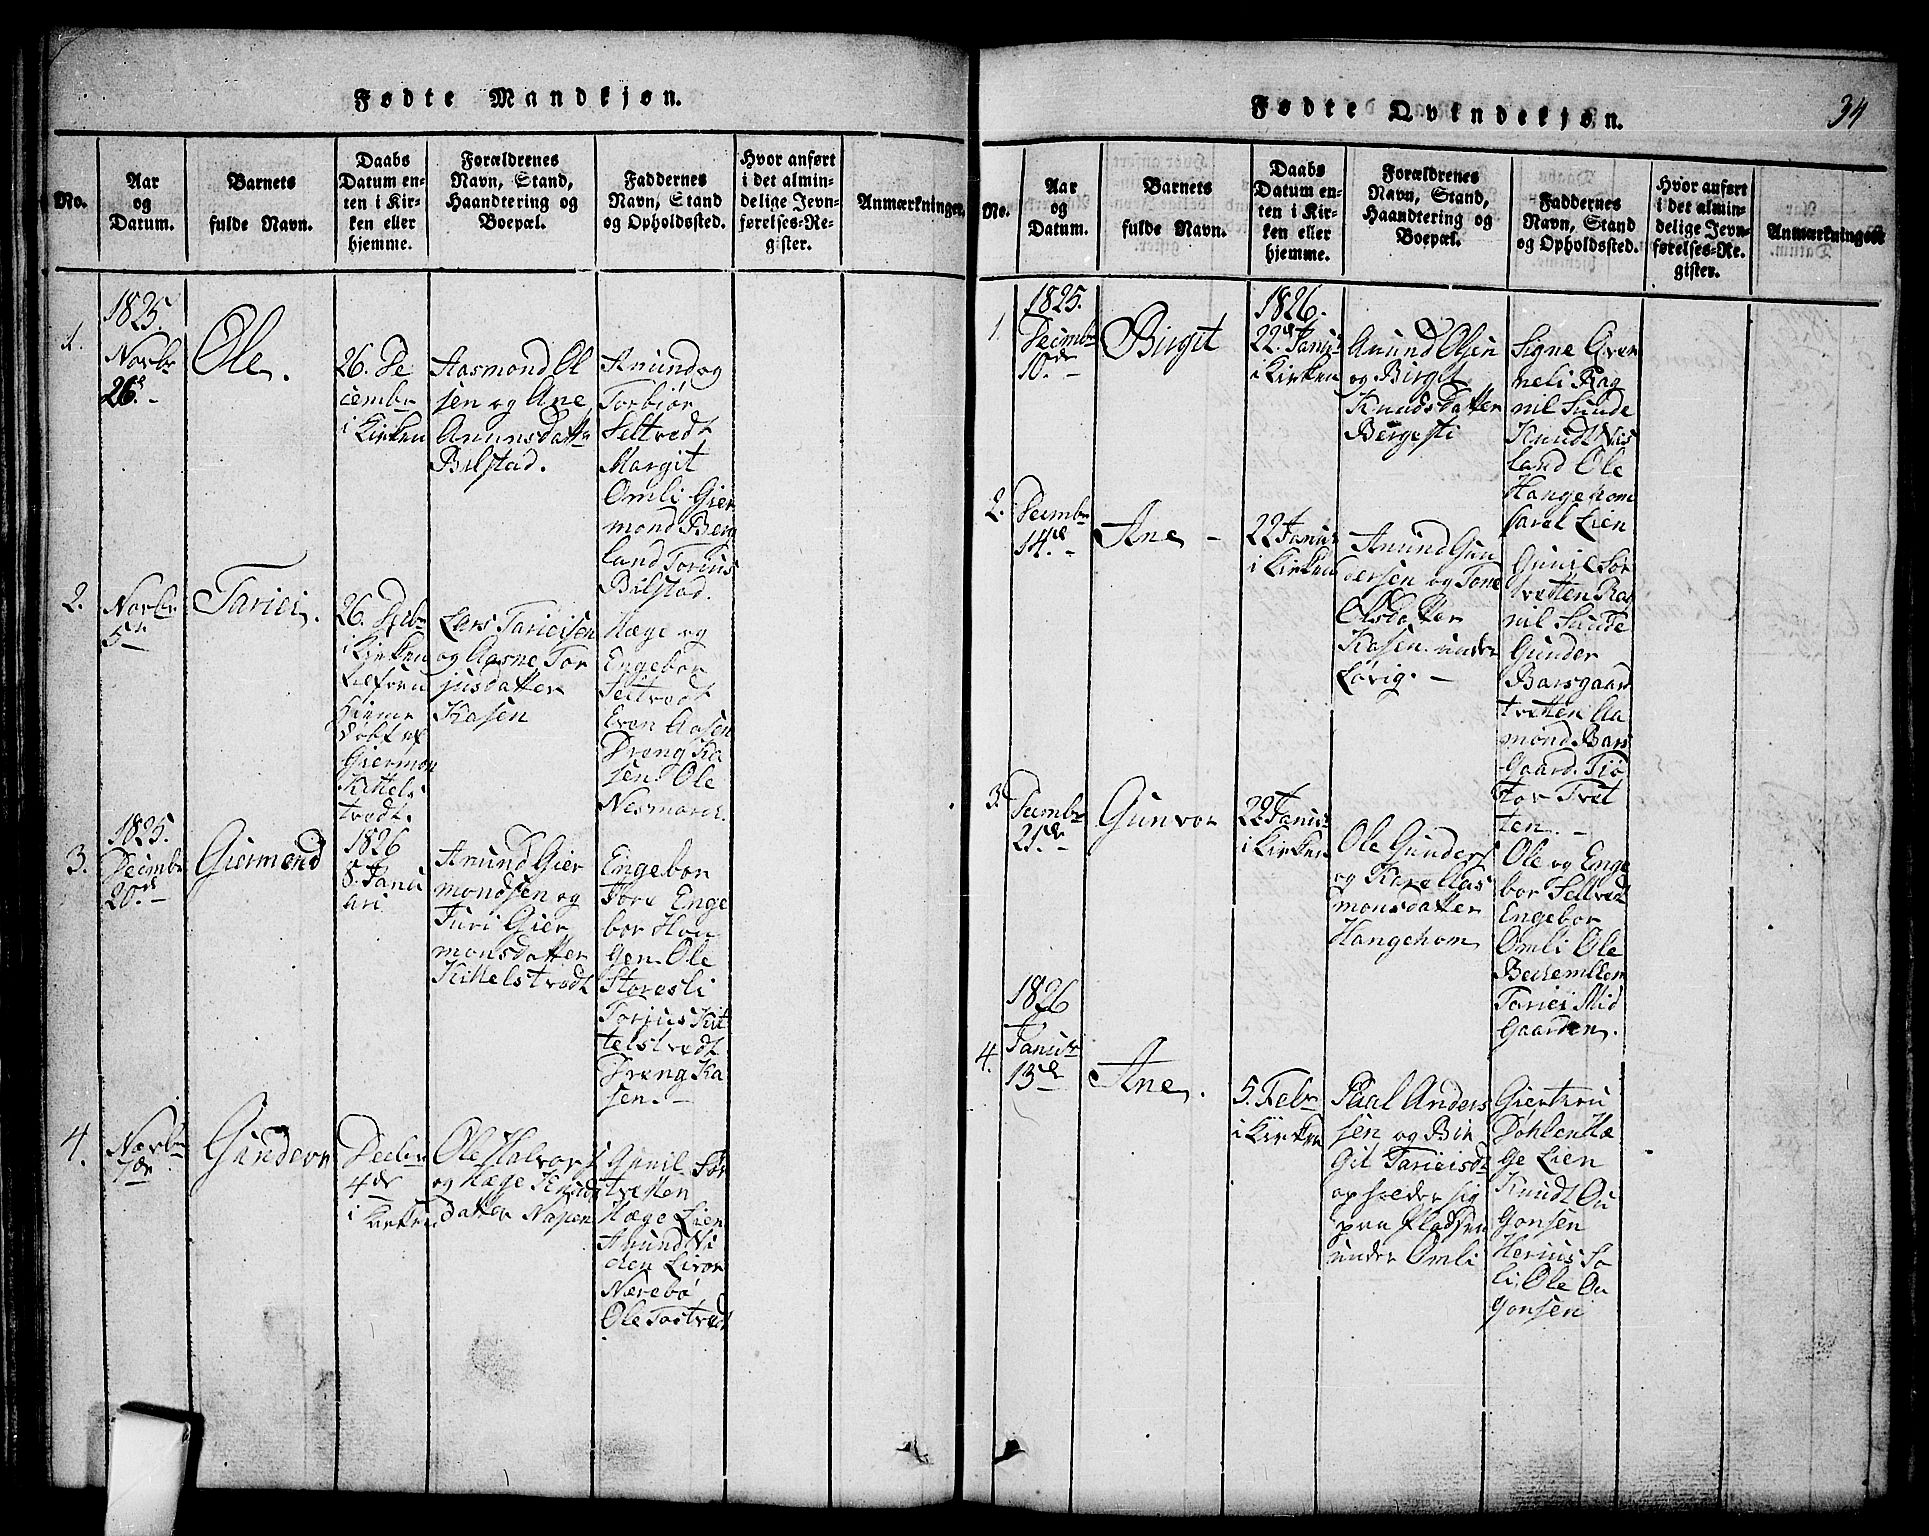 Fødte Mandkjøn.
No.
Aar
og
Datum.
Barnets
fulde Navn.
Daabs
Datum en-
ten i Kir-
ken eller
hjemme.
Forældrenes
Navn, Stand,
Haandtering og
Boepæl.
Faddernes
Navn, Stand
og Opholdssted.
Hvor anført
i det almin-
delige Jevn-
førelses-Re-
gister.
Anmærkninger.
1.
1825.
Novbr
26.
Ole.
26. De
cembr
i Kirken
Aasmond Ol
sen og Ane
Anunsdatter
Bilstad.
Anund og
Torbjør
Seltvedt
Margit
Omli Gier
mond Berg
land Torius
Bilstad.
2.
Novbr
5te
Tariei.
26. Debr
i Kirken
tilforn
hieme
døbt af
Giermon
Kittels
trædt.
Lars Tarieisen
og Aasne Tor
jusdatter
Kasen
Hæge og
Engebor
Seltvedt
Even Aasen
Dreng Ka
sen. Ole
Nesmoren.
3.
1825.
Decembr
20de
Giermond
1826
8. Janu
ari
Anund Gier
mondsen og
Juri Gier
monsdatter
Kittelstrædt
Engebor
Fore Enge
bor Hou
gen. Ole
Storesli
Torjus Kit
telstrædt
Dreng Ka
sen.
4.
Novbr
7de
Gunder
Decbr
4de
i Kirken
Ole Halvors
og Hæge Knuds
datter Napen
Gunil Sør
tvetten
Hæge Lien
Anund Vi
den Livor
Nærebø
Ole Tostvedt
Fødte Qvindekjøn.
34
No.
Aar
og
Datum.
Barnets
fulde Navn.
Daabs
Datum en-
ten i Kir-
ken eller
hjemme.
Forældrenes
Navn, Stand,
Haandtering og
Boepæl.
Faddernes
Navn, Stand
og Opholdssted.
Hvor anført
i det almin-
delige Jevn-
førelses-Re-
gister.
Anmærkninger
1.
1825.
Decembr
10de
Birgit
1826.
22de Janu
i Kirken
Anund Olsen
og Birgit
Knudsdatter
Bergesti
Signe Qver
neli Rag
nil Sunde
Knudt Væs
land Ole
Hangehom
Saral Lien
2.
Decembr
14de
Ane
22 Janu
i Kirken
Anund Gun
dersen og Tone
Olsdatter
Kasen under
Løvig.
Gunil Sør
tvetten Rag
nil Sunde
Gunder
Barsgaard
tvetten Aa
mond Bars
Gaard. Tiø
stor Tvet
ten.
3.
Decembr
21de
Gunvor
22 Janu
i Kirken
Ole Gunders
og Kare Aas
monsdatter
Hangehom
Ole og Enge
bor Seltvedt
Engebor
Omli Ole
Beckemllem
Tariei Mid
Gaarden.
4.
1826
Janua
13de
Ane.
5. Febr
i Kirken
Paal Anders
sen og Bir
git Tarieisd
opholder sig
paa Pladsen
under Omli
Giertru
Dohlen Hæ
ge Lien
Knudt Ou
Gonsen
Herius So
li, Ole Ou
gonsen